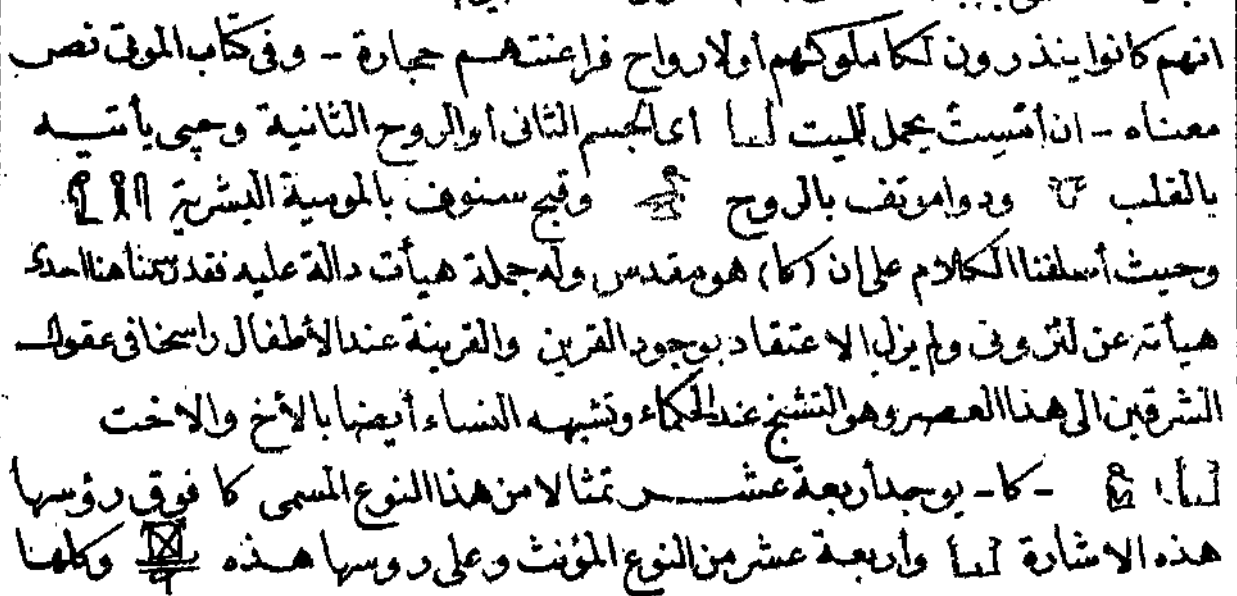 انهم كانوا ينذرون لكا ملوكهم أو لارواح فراعنتهم حجارة - وفى كتاب الموتى نص
معناه - ان أمسيت يحمل للميت 𓂓 أى الجسم الثانى أو الروح الثانية وحپى يأتيه
بالقلب ودواموتف بالروح وقبح سنوف بالمومية البشرية
وحيث أسلفنا الكلام على ان (كا) هو مقدس وله جملة هيأت دالة عليه فقد رسمنا هنا احدى
هيأته عن لنزونى ولم يزل الاعتقاد بوجود القرين والقرينة عند الأطفال راسخا فى عقول
الشرقين الى هذا العصر وهو التشنج عند الحكماء وتشبهه النساء أيضا بالأخ والاخت
𓂓 - كا - يوجد أربعة عشر تمثالا من هذا النوع المسمى كا فوق رؤسها
هذه الاشارة 𓂓 وأربعة عشر من النوع المؤنث وعلى روسها هذه وكلها